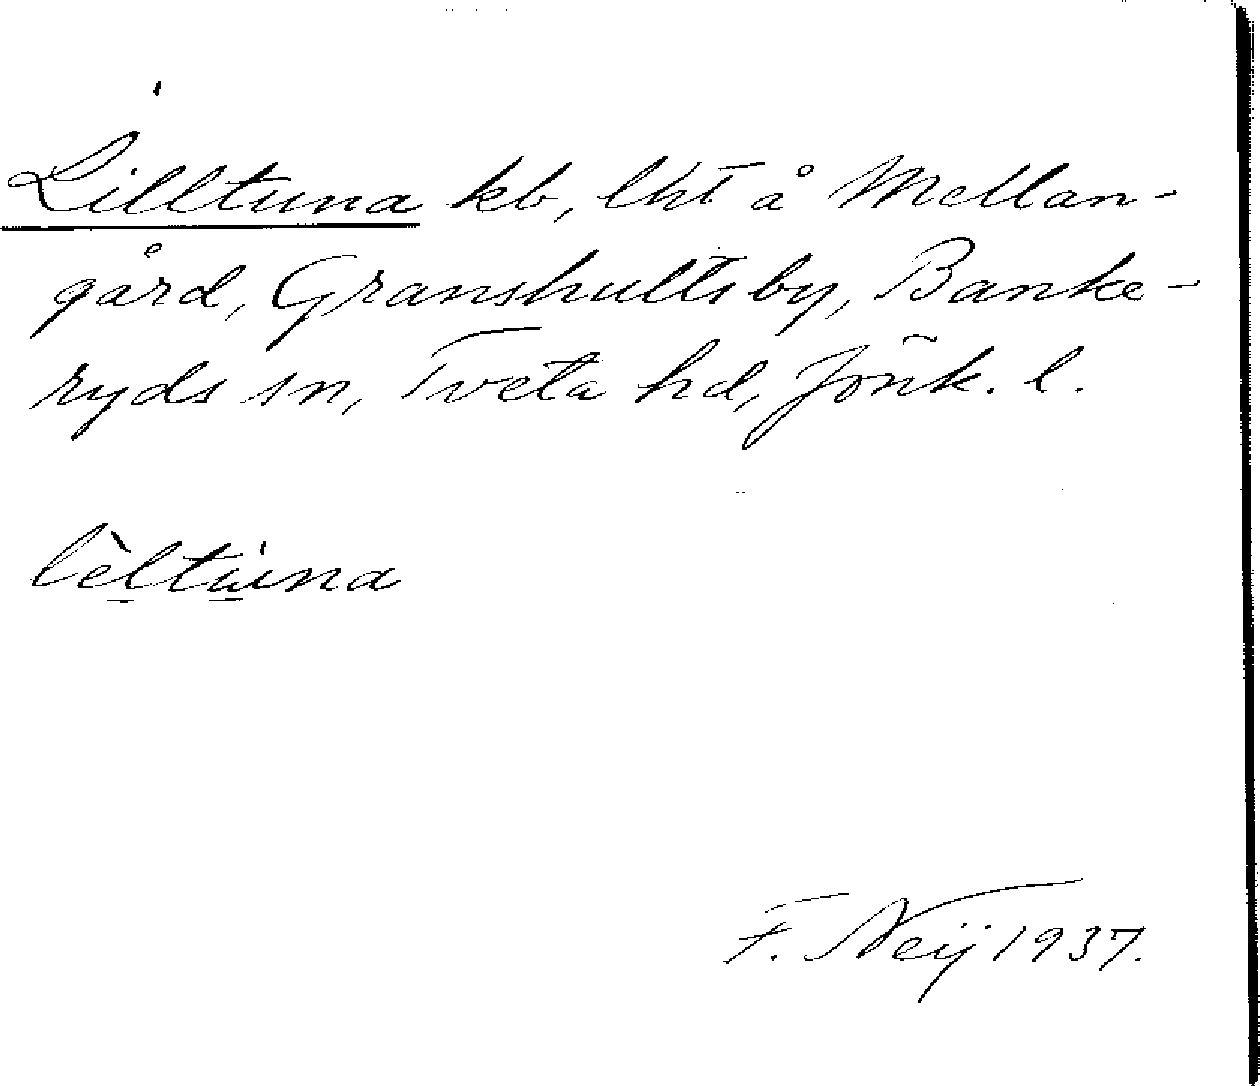 Lilltuna kb, lht å Mellan-
gård, Granshults by, Banke-
ryds sn, Tveta hd, Jönk. l.
lèltuna
F. Neij 1937.